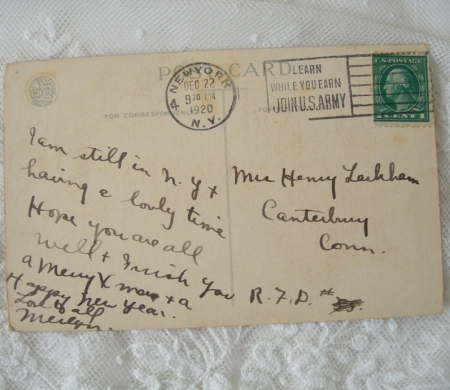 POST CARD
NEW YORK
4
DEC 22
9 30 PM
1920
N.Y.
LEARN
WHILE YOU EARN
JOIN U.S. ARMY
U.S. POSTAGE
1 CENT 1
FOR CORRESPONDENCE
I am still in N.Y +
having a lovly time
Hope you are all
well + I wish you
a Merry Xmas + a
Happy New Year.
Love to all
Mrs Henry
Canterbury
Conn.
R.F.D. #